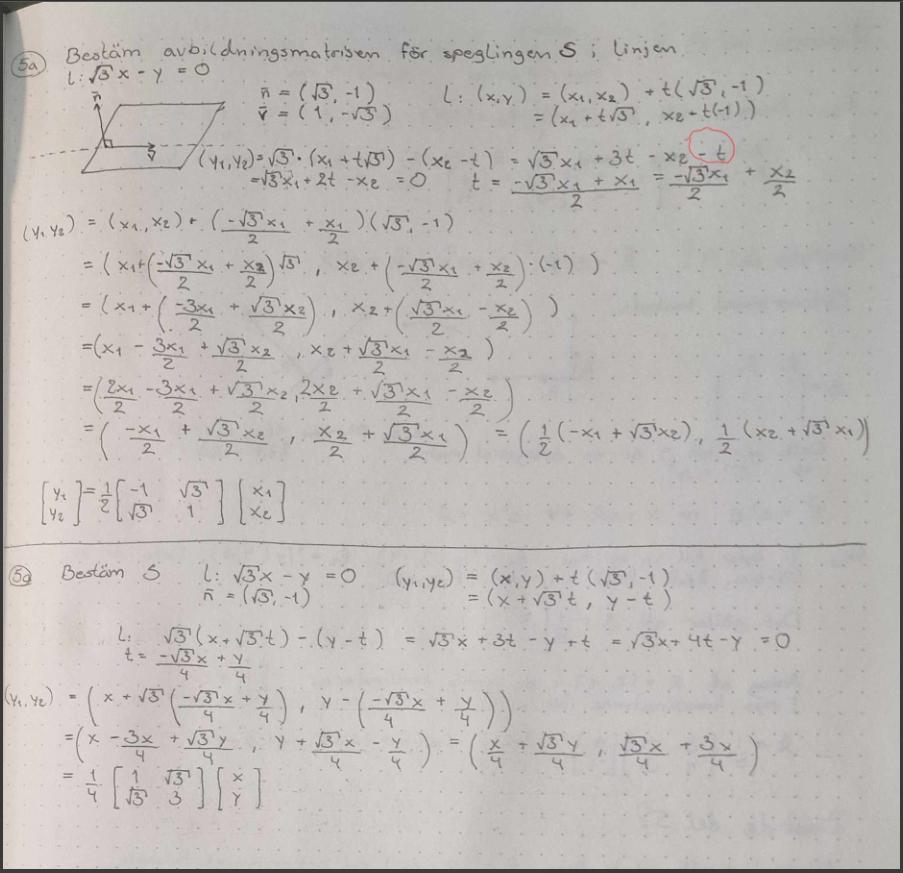 5a Bestäm avbildningsmatrisen för speglingen S i linjen
l: √3 x - y = 0
n̄ = (√3, -1) l: (x,y) = (x₁, x₂) + t(√3, -1)
v̄ = (1, -√3) = (x₁ + t√3, x₂ + t(-1))
n̄
v̄
(y₁, y₂) = √3 · (x₁ + t√3) - (x₂ - t) = √3 x₁ + 3t - x₂ - t
= √3 x₁ + 2t - x₂ = 0 t = (-√3 x₁ + x₁)/2 = -√3 x₁/2 + x₂/2
(y₁ y₂) = (x₁, x₂) + (-√3 x₁/2 + x₁/2)(√3, -1)
= (x₁ + (-√3 x₁/2 + x₂/2)√3, x₂ + (-√3 x₁/2 + x₂/2) · (-1))
= (x₁ + (-3x₁/2 + √3 x₂/2), x₂ + (√3 x₁/2 - x₂/2))
= (x₁ - 3x₁/2 + √3 x₂/2, x₂ + √3 x₁/2 - x₂/2)
= (2x₁/2 - 3x₁/2 + √3 x₂/2, 2x₂/2 + √3 x₁/2 - x₂/2)
= (-x₁/2 + √3 x₂/2, x₂/2 + √3 x₁/2) = (1/2(-x₁ + √3 x₂), 1/2(x₂ + √3 x₁))
[y₁; y₂] = 1/2 [-1 √3; √3 1] [x₁; x₂]
5a Bestäm S l: √3 x - y = 0 (y₁, y₂) = (x, y) + t(√3, -1)
n̄ = (√3, -1) = (x + √3 t, y - t)
l: √3(x + √3 t) - (y - t) = √3 x + 3t - y + t = √3 x + 4t - y = 0
t = -√3 x/4 + y/4
(y₁, y₂) = (x + √3(-√3 x/4 + y/4), y - (-√3 x/4 + y/4))
= (x - 3x/4 + √3 y/4, y + √3 x/4 - y/4) = (x/4 + √3 y/4, √3 x/4 + 3x/4)
= 1/4 [1 √3; √3 3] [x; y]